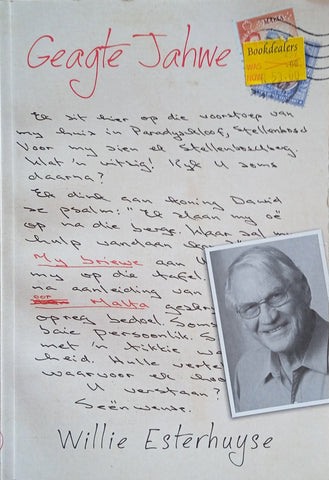 Geagte Jahwe
Bookdealers
WAS
NOW
Ek sit hier op die voorstoep van
my huis in Paradyskloof, Stellenbosch
Voor my sien ek Stellenboschberg.
Wat 'n uitsig! Kyk U soms
daarna?
Ek dink aan koning Dawid
se psalm: "Ek slaan my oë
op na die berge. Waar sal my
hulp vandaan kom
My briewe aan U
my op die tafel
na aanleiding van
oor
Malta geskryf
opreg bedoel. Soms
baie persoonlik. S
met 'n tikkie
heid. Hulle vertel
waarvoor ek
U verstaan?
Seënwense.
Willie Esterhuyse